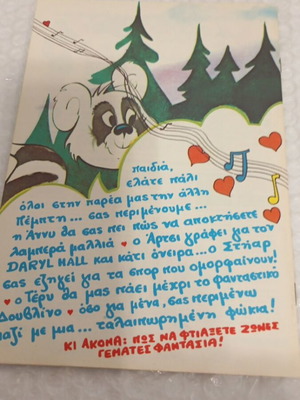 παιδιά,
ελάτε πάλι
όλοι στην παρέα μας την άλλη
Πέμπτη... σας περιμένουμε...
η Άννυ θα σας πει πώς να αποκτήσετε
λαμπερά μαλλιά • ο Άρτσι γράφει για τον
DARYL HALL και κάτι όνειρα... ο Στήαρ
σας εξηγεί για τα σπορ που ομορφαίνουν!
• ο Τέρυ θα μας πάει μέχρι το φανταστικό
Δουβλίνο • όσο για μένα, σας περιμένω
μαζί με μια... ταλαιπωρημένη φώκια!
ΚΙ ΑΚΟΜΑ: ΠΩΣ ΝΑ ΦΤΙΑΞΕΤΕ ΖΩΝΕΣ
ΓΕΜΑΤΕΣ ΦΑΝΤΑΣΙΑ!